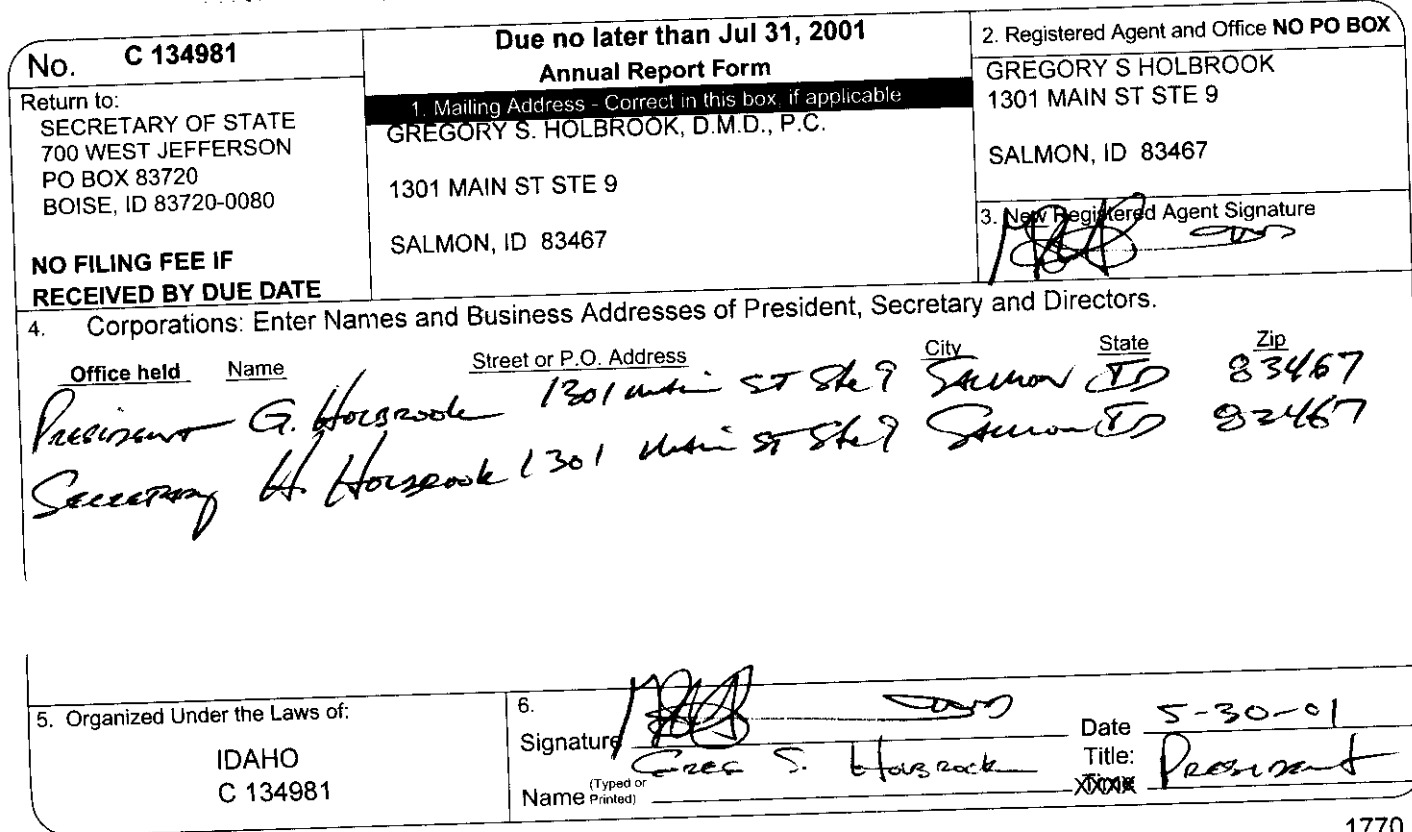 No. C 134981
Return to:
SECRETARY OF STATE
700 WEST JEFFERSON
PO BOX 83720
BOISE, ID 83720-0080
NO FILING FEE IF
RECEIVED BY DUE DATE
Due no later than Jul 31, 2001
Annual Report Form
1. Mailing Address - Correct in this box, if applicable
GREGORY S. HOLBROOK, D.M.D., P.C.
1301 MAIN ST STE 9
SALMON, ID 83467
2. Registered Agent and Office NO PO BOX
GREGORY S HOLBROOK
1301 MAIN ST STE 9
SALMON, ID 83467
3. New Registered Agent Signature
4. Corporations: Enter Names and Business Addresses of President, Secretary and Directors.
Office held Name Street or P.O. Address City State Zip
President G. Holbrook 1301 Main ST Ste 9 Salmon ID 83467
Secretary H. Holbrook 1301 Main ST Ste 9 Salmon ID 83467
5. Organized Under the Laws of:
IDAHO
C 134981
6.
Signature Date 5-30-01
Name (Typed or Printed) Greg S. Holbrook Title: President
1770